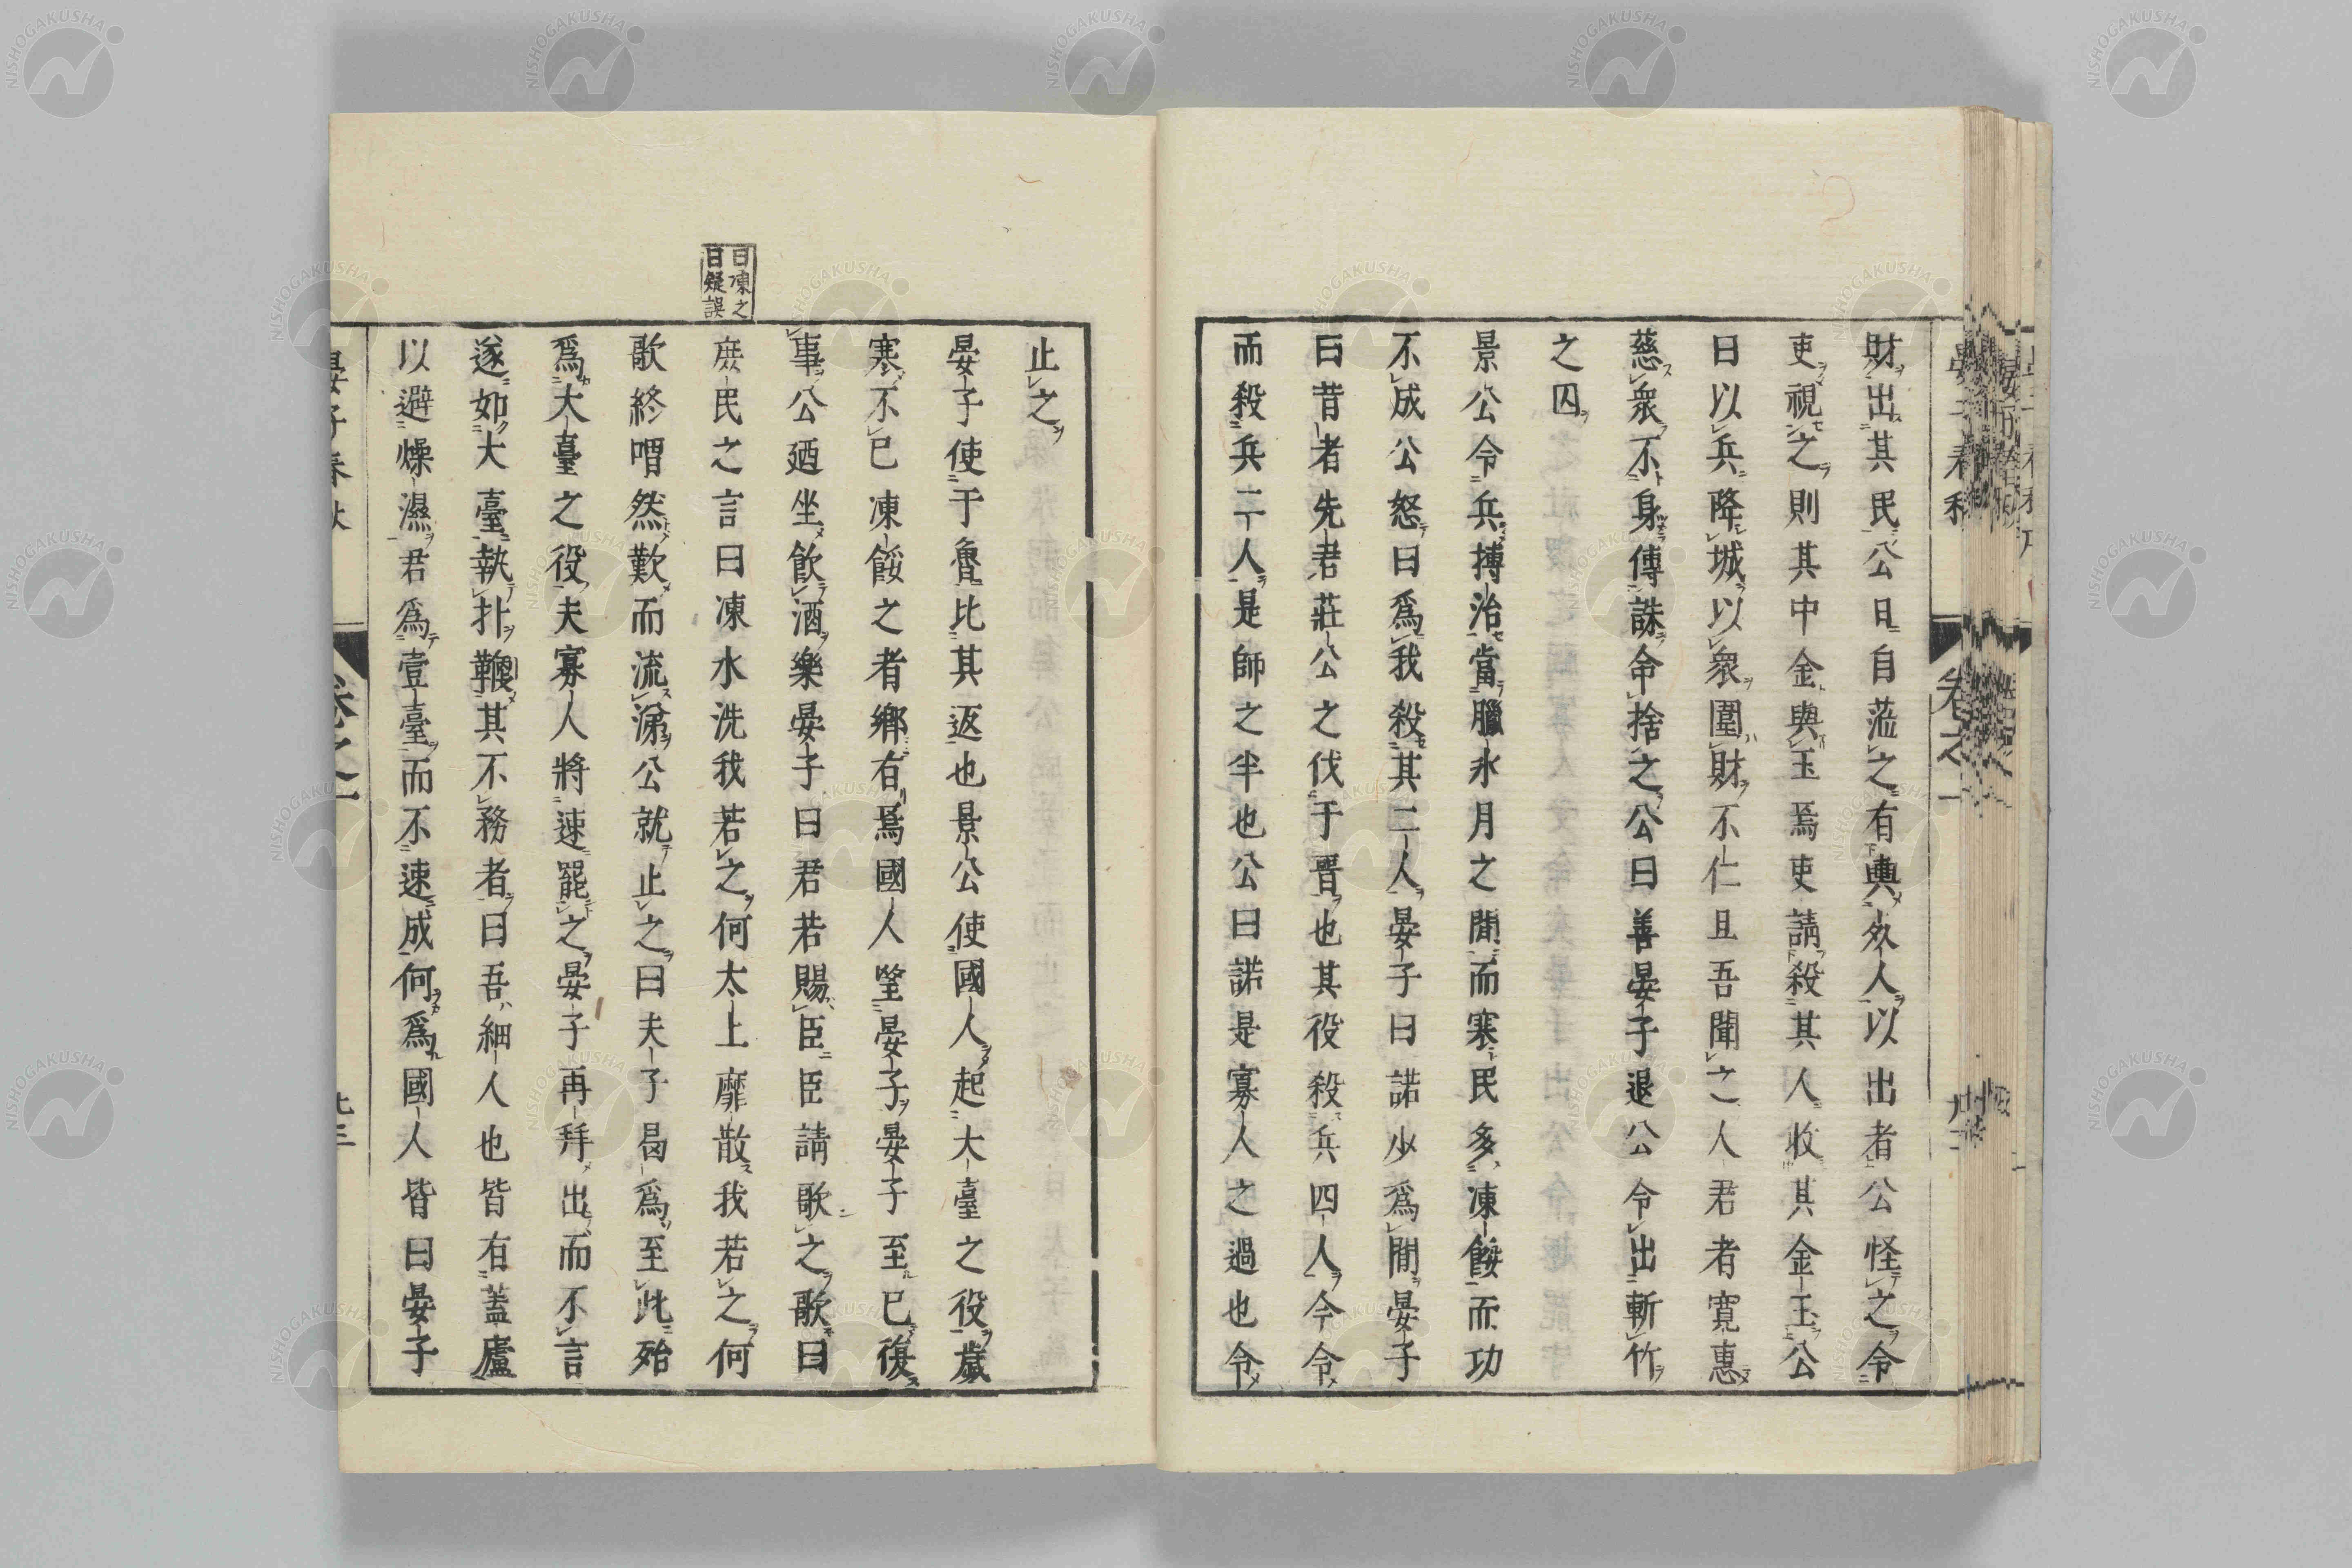 財出其民公曰自蒞之有輿死人以出者公怪之令
吏視之則其中金與玉焉吏請殺其人收其金玉公
曰以兵降城以衆圍財不仁且吾聞之人君者寬惠
慈衆不身傳誅命捨之公曰善晏子退公令出斬竹
之囚
景公令兵摶治當臘氷月之間而寒民多凍餒而功
不成公怒曰爲我殺其二人晏子曰諾少爲間晏子
曰昔者先君莊公之伐于晋也其役殺兵四人今令
而殺兵二人是師之半也公曰諾是寡人之過也令
止之
晏子使于魯比其返也景公使國人起大臺之役歲
寒不已凍餒之者鄉有焉國人望晏子晏子至已復
事公廼坐飲酒樂晏子曰君若賜臣臣請歌之歌曰
庶民之言曰凍水洗我若之何太上靡散我若之何
歌終喟然歎而流涕公就止之曰夫子曷爲至此殆
爲大臺之役夫寡人將速罷之晏子再拜出而不言
遂如大臺執扑鞭其不務者曰吾細人也皆有蓋廬
以避燥濕君爲壹臺而不速成何爲國人皆曰晏子
曰凍之
曰疑誤
晏子春秋
卷之一
NISHOGAKUSHA